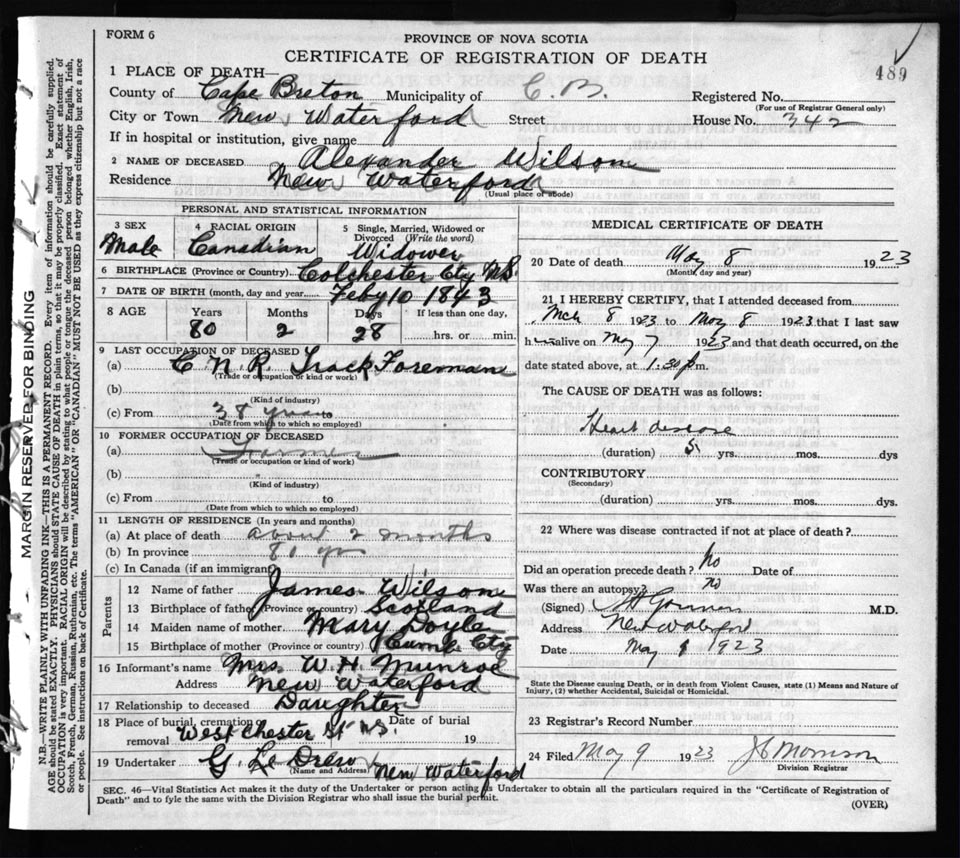 FORM 6
PROVINCE OF NOVA SCOTIA
CERTIFICATE OF REGISTRATION OF DEATH
489
1 PLACE OF DEATH—
County of Cape Breton Municipality of C. B. Registered No.
(For use of Registrar General only)
City or Town New Waterford Street House No. 342
If in hospital or institution, give name
2 NAME OF DECEASED Alexander Wilson
Residence New Waterford
(Usual place of abode)
PERSONAL AND STATISTICAL INFORMATION
3 SEX 4 RACIAL ORIGIN 5 Single, Married, Widowed or Divorced (Write the word)
Male Canadian Widower
6 BIRTHPLACE (Province or Country) Colchester Cty N.S.
7 DATE OF BIRTH (month, day and year) Feby 10 1843
8 AGE Years Months Days If less than one day,
80 2 28 hrs. or min.
9 LAST OCCUPATION OF DECEASED
(a) C. N. R. Track Foreman
(Trade or occupation or kind or work)
(b)
(Kind of industry)
(c) From 38 years to
(Date from which to which so employed)
10 FORMER OCCUPATION OF DECEASED
(a) Farmer
(Trade or occupation or kind of work)
(b) "
(Kind of industry)
(c) From to
(Date from which to which so employed)
11 LENGTH OF RESIDENCE (In years and months)
(a) At place of death about 2 months
(b) In province 80 yrs
(c) In Canada (if an immigrant)
Parents
12 Name of father James Wilson
13 Birthplace of father (Province or country) Scotland
14 Maiden name of mother Mary Doyle
15 Birthplace of mother (Province or country) Cumb. Cty
16 Informant's name Mrs. W. H. Munroe
Address New Waterford
17 Relationship to deceased Daughter
18 Place of burial, cremation or removal West Chester St N.S. Date of burial 19
19 Undertaker G. Le Drew New Waterford
(Name and Address)
MEDICAL CERTIFICATE OF DEATH
20 Date of death May 8 1923
(Month, day and year)
21 I HEREBY CERTIFY, that I attended deceased from
Mch 8 1923 to May 8 1923 that I last saw
h alive on May 7 1923 and that death occurred, on the
date stated above, at 1.30 p.m.
The CAUSE OF DEATH was as follows:
Heart disease
(duration) 5 yrs. mos. dys
CONTRIBUTORY
(Secondary)
(duration) yrs. mos. dys.
22 Where was disease contracted if not at place of death?
Did an operation precede death? No Date of
Was there an autopsy? no
(Signed) M.D.
Address New Waterford
Date May 9 1923
State the Disease causing Death, or in death from Violent Causes, state (1) Means and Nature of
Injury, (2) whether Accidental, Suicidal or Homicidal.
23 Registrar's Record Number
24 Filed May 9 1923 J C Morrison
Division Registrar
SEC. 46—Vital Statistics Act makes it the duty of the Undertaker or person acting as Undertaker to obtain all the particulars required in the "Certificate of Registration of
Death" and to fyle the same with the Division Registrar who shall issue the burial permit.
(OVER)
MARGIN RESERVED FOR BINDING
N.B.—WRITE PLAINLY WITH UNFADING INK—THIS IS A PERMANENT RECORD. Every item of information should be carefully supplied.
AGE should be stated EXACTLY. PHYSICIANS should STATE CAUSE OF DEATH in plain terms, so that it may be properly classified. Exact statement of
OCCUPATION is very important. RACIAL ORIGIN will be described by stating to what people or tongue the deceased person belonged whether English, Irish,
Scotch, French, German, Russian, Ruthenian, etc. The terms "AMERICAN" OR "CANADIAN" MUST NOT BE USED as they express citizenship but not a race
or people. See instructions on back of Certificate.